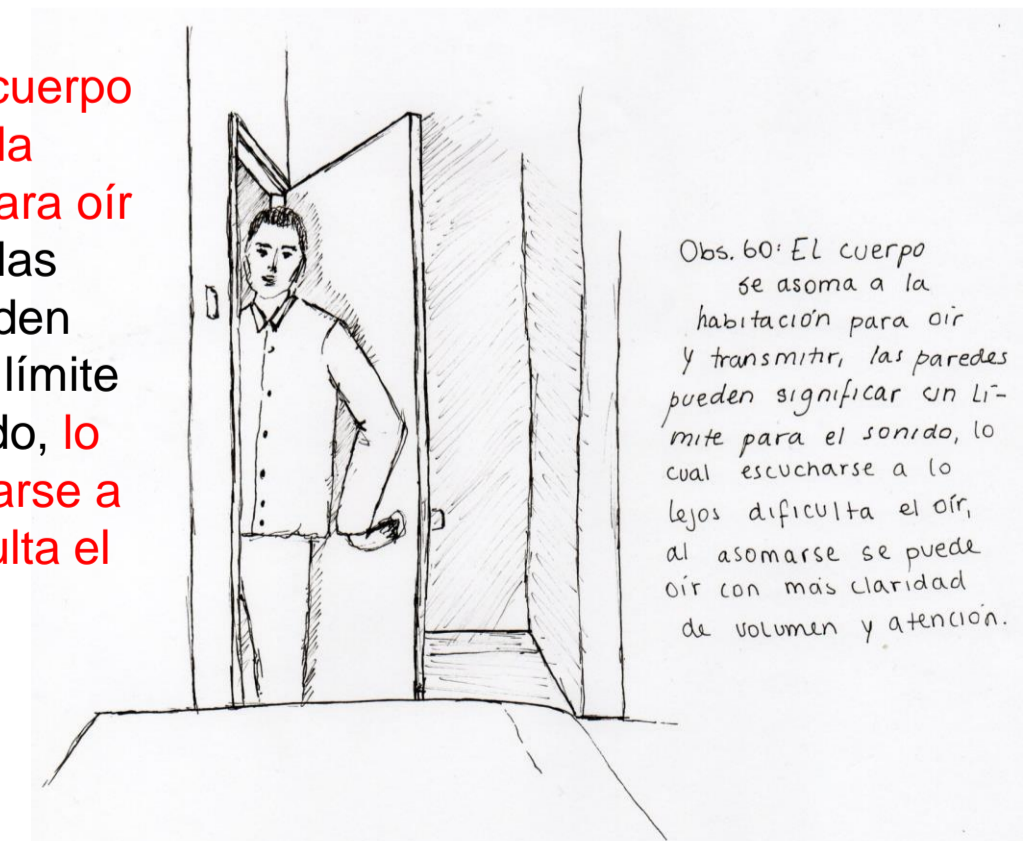 cuerpo
la
ara oír
las
den
límite
do, lo
arse a
ulta el
Obs. 60: El cuerpo
se asoma a la
habitación para oir
y transmitir, las paredes
pueden significar un lí-
mite para el sonido, lo
cual escucharse a lo
lejos dificulta el oír,
al asomarse se puede
oír con más claridad
de volumen y atención.